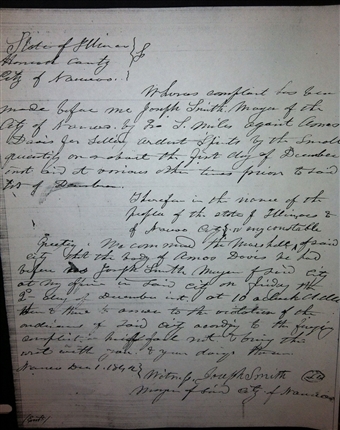 State of Illinois } S
Hancock County
City of Nauvoo. }
Whereas complaint has been
made before me Joseph Smith Mayor of the
City of Nauvoo. by S. Miles against Amos
Davis for selling ardent spirits by the small
quantity on or about the first day of December
inst and at various other times prior to said
1st of December
Therefore in the name of the
people of the state of Illinois &
of Nauvoo City any constable
Greeting. We command the Marshall of said
city that the body of Amos Davis be had
before Joseph Smith Mayor of said city
at my office in said city on Friday the
2d day of December inst. at 10 o clock AM
then & there to answer to the violation of the
ordinance of said city according to the
complaint. fail not & bring this
writ with you. & your doings thereon
Nauvoo Dec 1. 1842 } Witness Joseph Smith
Mayor of said City of Nauvoo